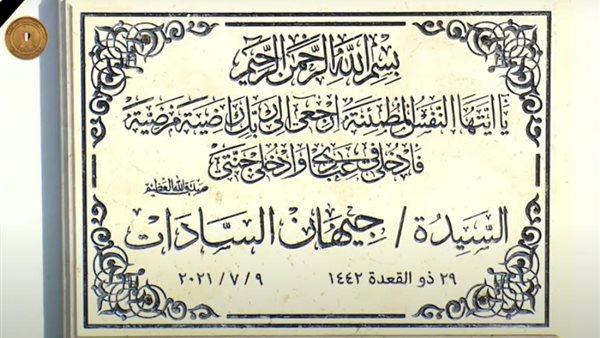 بسم الله الرحمن الرحيم
يا أيتها النفس المطمئنة ارجعي إلى ربك راضية مرضية
فادخلي في عبادي وادخلي جنتي
صدق الله العظيم
السيدة / جيهان السادات
٢٩ ذو القعدة ١٤٤٢ ٩ / ٧ / ٢٠٢١